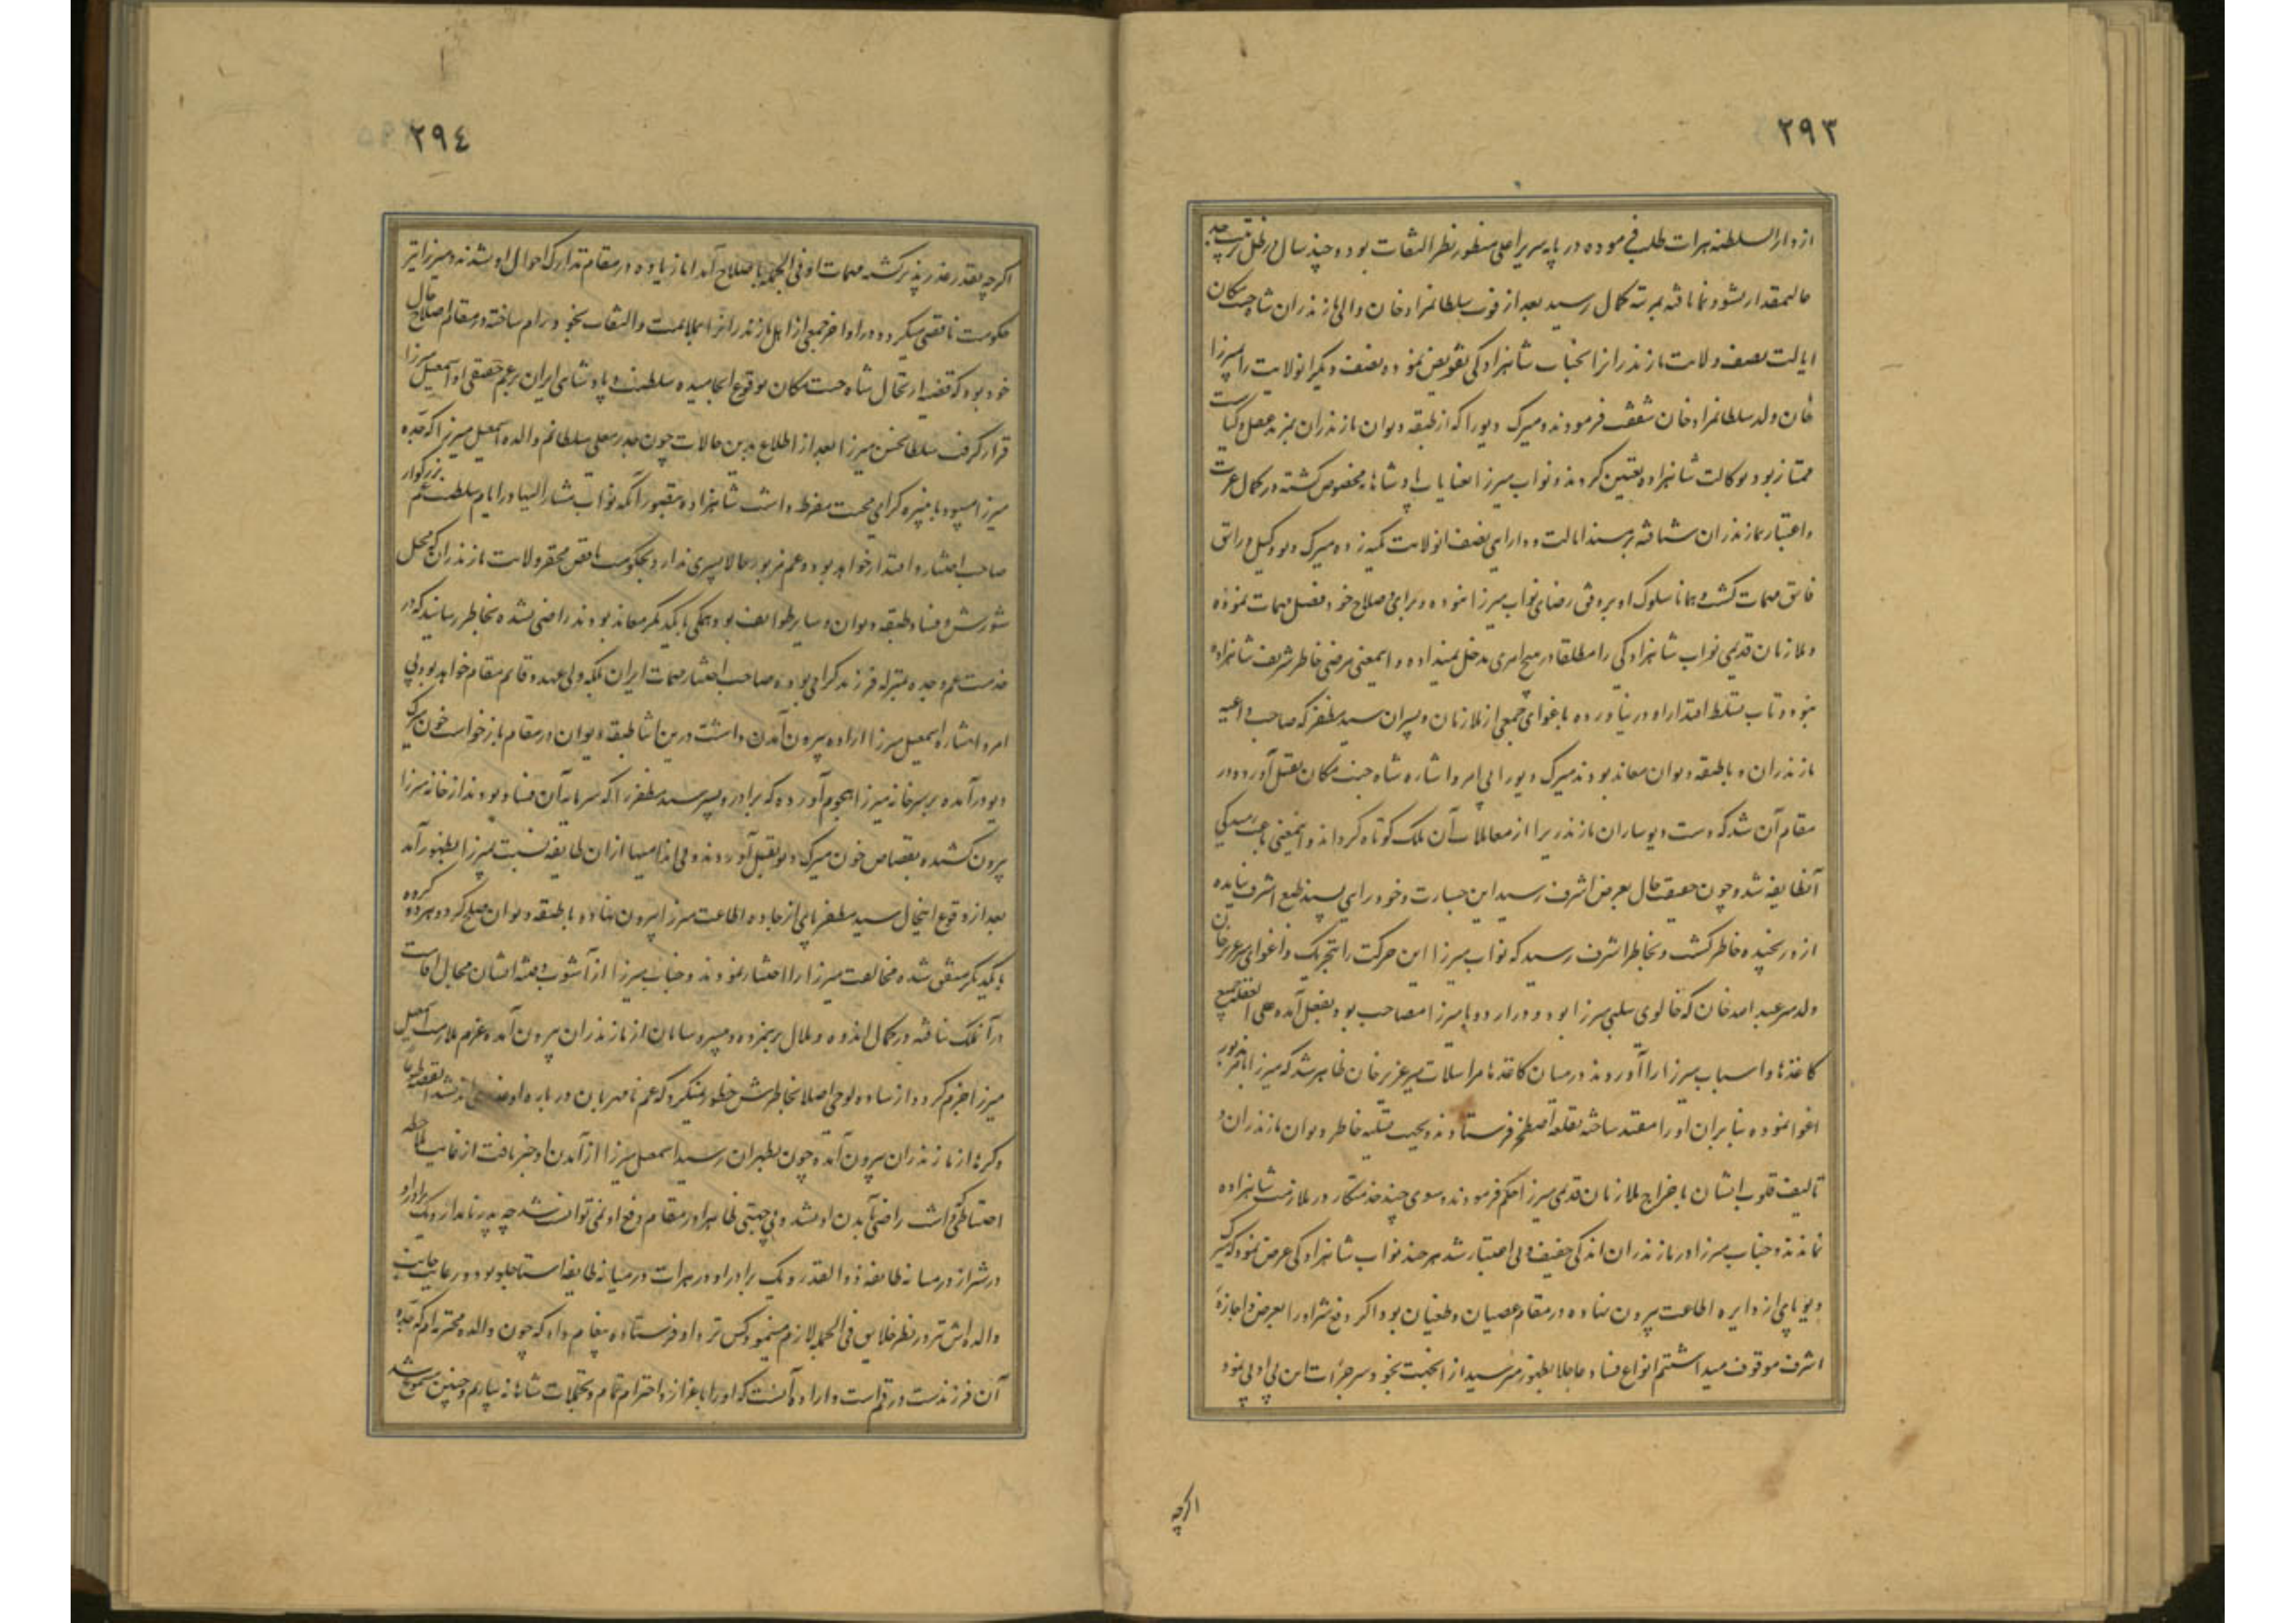 ٢٩٣
از دارالسلطنه هرات طلب فرموده در پایه سریر اعلی منظور نظر التفات بود و چند سال در ظل تربیت جد
عالیمقدار نشو و نما یافته بمرتبه کمال رسید بعد از فوت سلطانمراد خان والی مازندران شاه جنت مکان
ایالت نصف ولایت مازندرانرا بجناب شاهزادگی تفویض نموده و نصف دیگر انولایت را بمیرزا
خان ولد سلطانمراد خان شفقت فرمودند و میرک دیو را که از طبقه دیوان مازندران بمزید عقل و کیاست
ممتاز بود بوکالت شاهزاده تعیین کردند و نواب میرزا بعنایات پادشاهانه مخصوص گشته در کمال عزت
و اعتبار بمازندران شتافته بر مسند ایالت و دارایی نصف انولایت تکیه زده میرک دیو وکیل و راتق
فاتق مهمات گشت و همانا سلوک او بر وفق رضای نواب میرزا نبوده و برای و صلاح خود فیصل مهمات نموده
و ملازمان قدیمی نواب شاهزادگی را مطلقا در هیچ امری مدخل نمیداده و اینمعنی مرضی خاطر شریف شاهزاده
نبود و تاب تسلط و اقتدار او نیاورده باغوای جمعی از ملازمان و پسران سید مظفر که صاحب داعیه
مازندران و با طبقه دیوان معاند بودند میرک دیو را بی امر و اشاره شاه جنت مکان بقتل آورده در
مقام آن شد که دست دیوساران مازندریرا از معاملات آن ملک کوتاه گرداند و اینمعنی باعث رمیدگی
آنطایفه شد و چون حقیقت حال بعرض اشرف رسید این جسارت و خودرایی پسند طبع اشرف نیامده
ازو رنجیده خاطر گشت و بخاطر اشرف رسید که نواب میرزا این حرکت را بتحریک و اغوای میر عزیز خان
ولد میر عبدالله خان که خالوی سلبی میرزا بود و در اردو با میرزا مصاحب بود بفعل آمده علی الغفله جمیع
کاغذها و اسباب میرزا را آوردند در میان کاغذها مراسلات میر عزیز خان ظاهر شد که میرزا را بامر مزبور
اغوا نموده بنابران او را مقید ساخته بقلعه اصطخر فرستادند و بجهت تسلیه خاطر دیوان مازندران و
تالیف قلوب ایشان باخراج ملازمان قدیمی میرزا حکم فرمودند و سوی چند خدمتکار در ملازمت شاهزاده
نماندند و جناب میرزا در مازندران اندکی خفیف و بی اعتبار شد هر چند نواب شاهزادگی عرض نمود که میرک
دیو پای از دایره اطاعت بیرون نهاده در مقام عصیان و طغیان بود اگر دفع شر او را بعرض و اجازه
اشرف موقوف میداشتم انواع فساد عاجلا بظهور میرسید از انجهت بخودسر جرأت این بی ادبی نمود
اگرچه
٢٩٤
اگرچه بقدر عذرپذیر گشته مهمات او فی الجمله باصلاح آمد اما زیاده در مقام تدارک احوال او نشدند و میرزا نیز
حکومت ناقصی میکرد و در اواخر جمعی از اهل مازندرانرا بملایمت و التفات بخود رام ساخته در مقام اصلاح حال
خود بود که قضیه ارتحال شاه جنت مکان بوقوع انجامیده سلطنت و پادشاهی ایران بر عم حقیقی او اسمعیل میرزا
قرار گرفت سلطان حسن میرزا بعد از اطلاع بدین حالات چون مهد معلی سلطانم والده اسمعیل میرزا که جده
میرزا میبود با نبیره گرامی محبت مفرط داشت شاهزاده مغفور آنکه نواب مشار الیها در ایام سلطنت عم بزرگوار
صاحب اختیار و اقتدار خواهد بود و عم مزبور حالا پسری ندارد بحکومت ناقص محقر ولایت مازندران که محل
شورش و فساد طبقه دیوان و سایر طوایف بود و همگی با یکدیگر معاند بودند راضی نشده بخاطر رسانید که در
خدمت عم و جده بمنزله فرزند گرامی بوده صاحب اختیار مهمات ایران بلکه ولی عهد و قایم مقام خواهد بود بی
امر و اشاره اسمعیل میرزا اراده بیرون آمدن داشت درین اثنا طبقه دیوان در مقام بازخواست خون میرک
دیو درآمده بر سر خانه میرزا هجوم آورده که برادر و پسر سید مظفر را که سرمایه آن فساد بودند از خانه میرزا
بیرون کشیده بقصاص خون میرک دیو بقتل آوردند و بی اندامیها ازان طایفه نسبت بمیرزا بظهور آمد
بعد از وقوع اینحال سید مظفر پای از جاده اطاعت میرزا بیرون نهاده با طبقه دیوان صلح کرد و هر دو گروه
با یکدیگر متفق شده مخالفت میرزا را اختیار نمودند و جناب میرزا از آشوب و فتنه ایشان مجال اقامت
در آنملک نیافته در کمال اندوه و ملال بریمزده و بیسر و سامان از مازندران بیرون آمده عزم ملازمت اسمعیل
میرزا جزم کرد و از ساده لوحی اصلا بخاطرش خطور نمیکرد که عم نامهربان در باره او اندیشد القصه طوعا
و کرها از مازندران بیرون آمده چون بطهران رسید اسمعیل میرزا از آمدن او خبر یافت از غایت ملاحظه
احتیاطی که داشت راضی بآمدن او نشد و بی جهتی ظاهرا در مقام دفع او نمی توانست شد چه پدر نامدار و یک برادر او
در شیراز در میانه طایفه ذوالقدر و یک برادر او در هرات در میانه طایفه استاجلو بود و رعایت جانب
والده اش نیز در نظر خلایق فی الجمله لازم مینمود کس نزد او فرستاده پیغام داد که چون والده محترمه ام که جده
آن فرزندست در قم است و اراده آنست که او را باعزاز و احترام تمام و تجملات شاهانه بیاریم و چنین مسموع شد